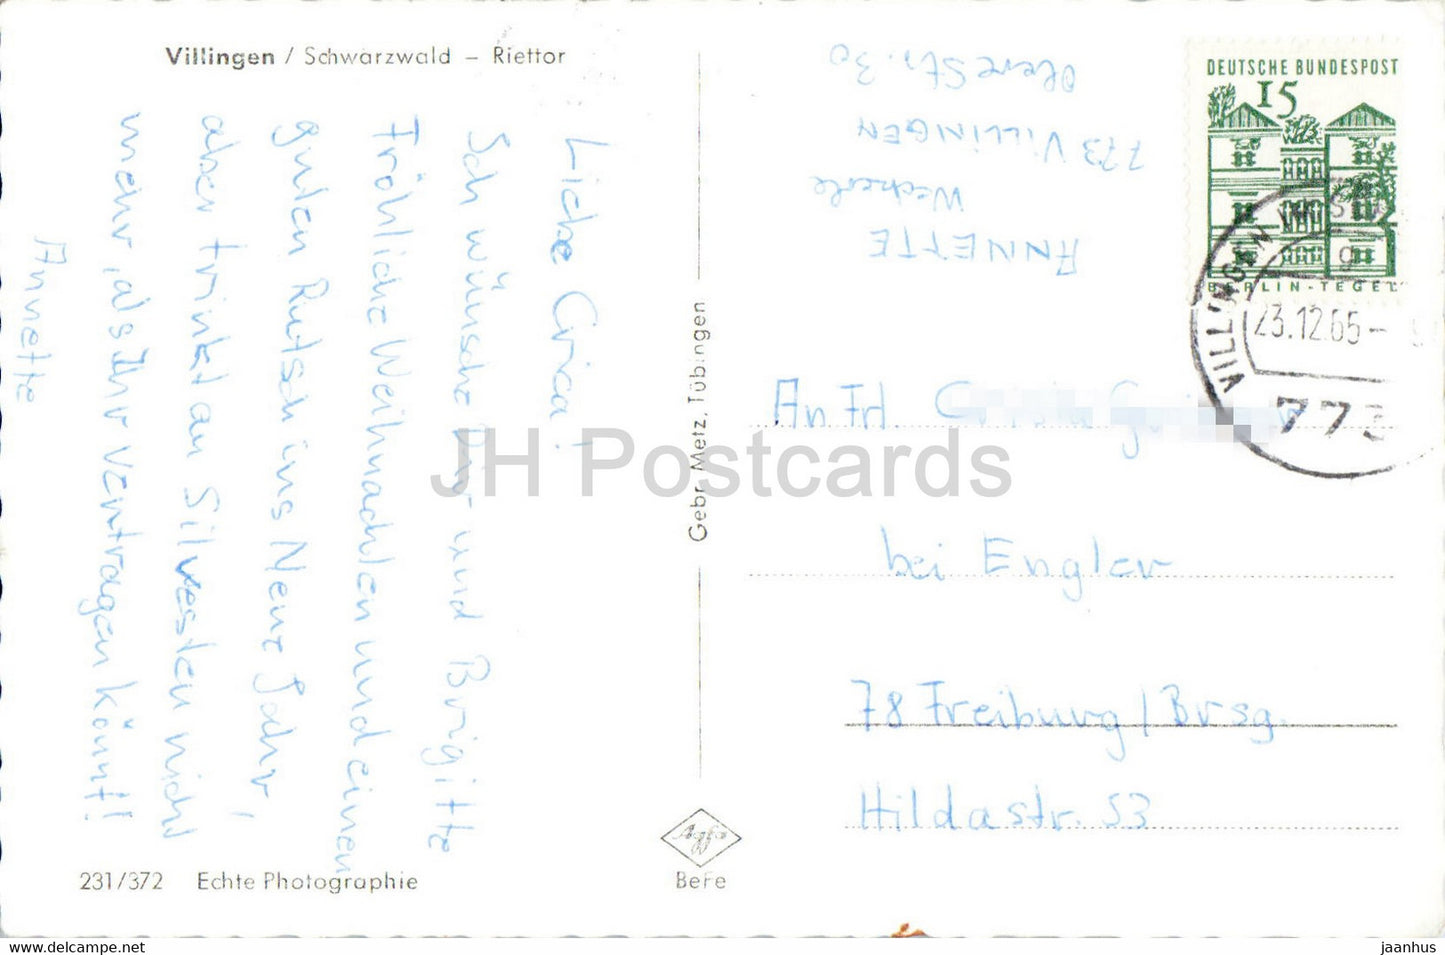 Villingen / Schwarzwald – Riettor
Liebe Crica!
Ich wünsche Dir und Brigitte
Fröhliche Weihnachten und einen
guten Rutsch ins Neue Jahr,
aber trinkt an Silvester nicht
mehr, als Ihr vertragen könnt!
Annette
231/372 Echte Photographie
Gebr. Metz, Tübingen
Agfa
BeFe
ANNETTE
Weckerle
773 VILLINGEN
Obere Str. 30
DEUTSCHE BUNDESPOST
15
BERLIN-TEGEL
VILLINGEN
g
23.12.65-
773
An Frl.
bei Engler
78 Freiburg / Brsg.
Hildastr. 53
JH Postcards
www.delcampe.net
jaanhus